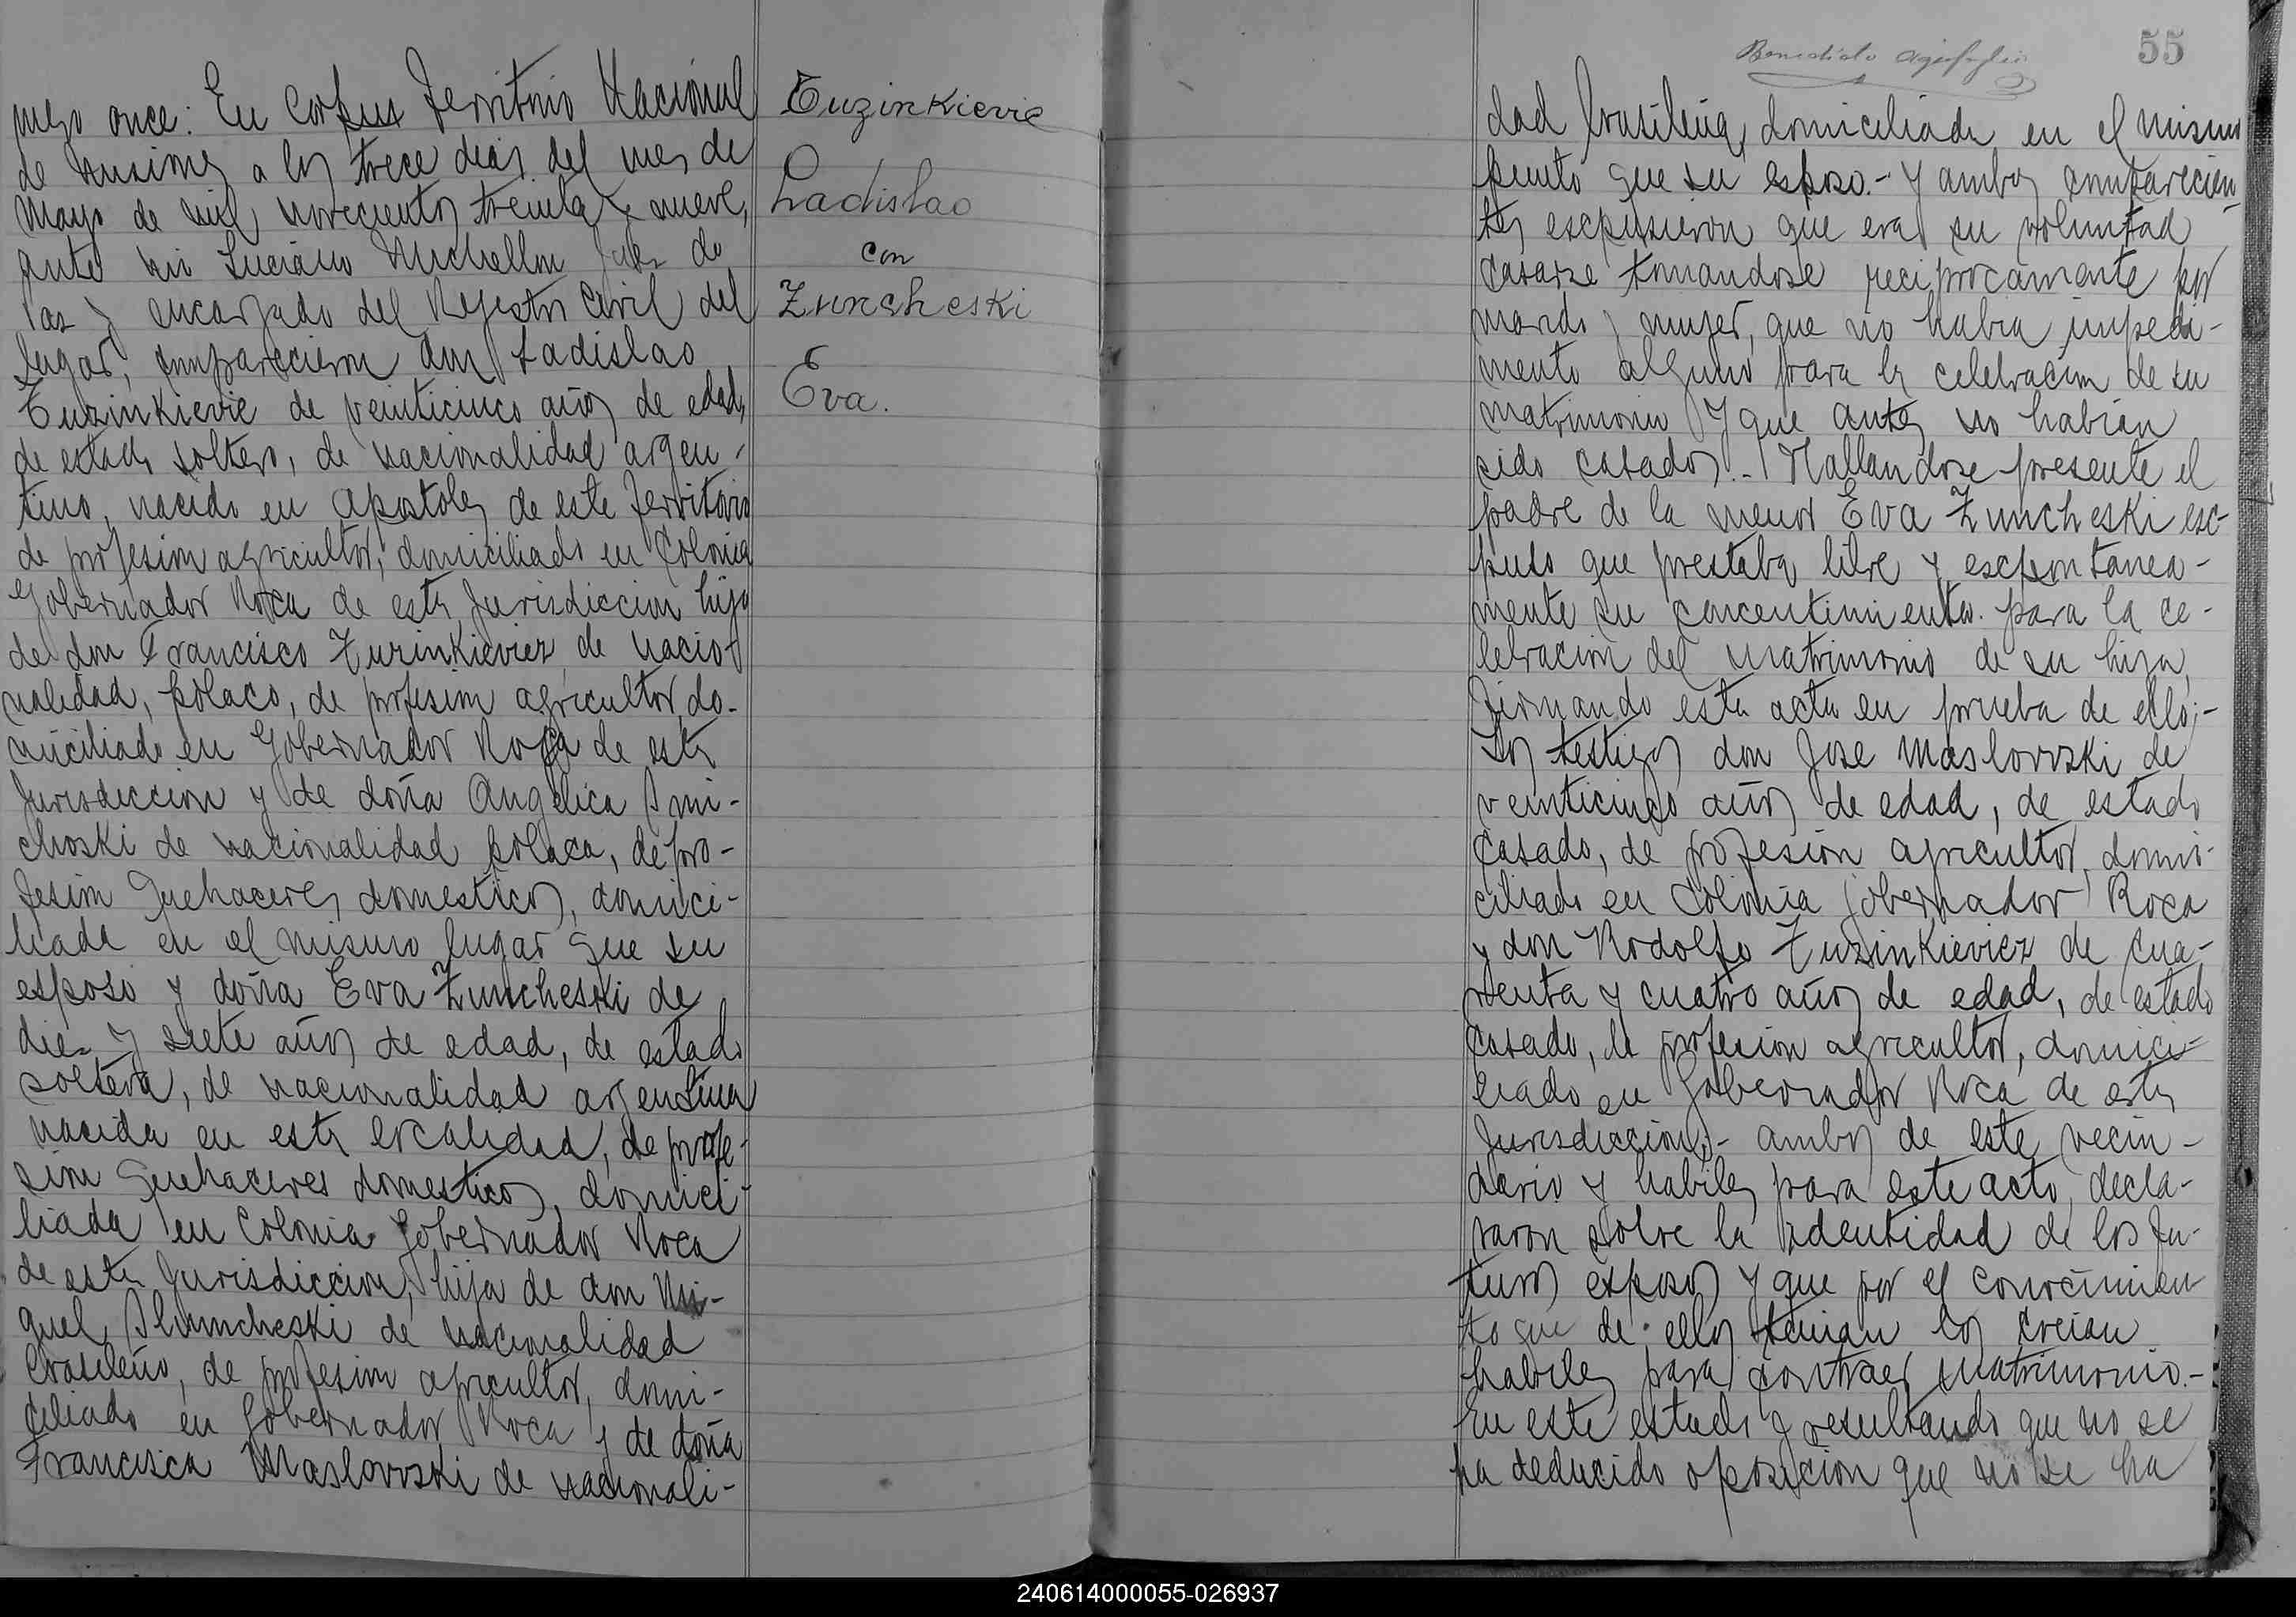 mero once: En Corpus Territorio Nacional
de Misiones a los trece dias del mes de
Mayo de mil novecientos treinta y nueve,
ante mi Luciano Michellon Juez de
Paz y encargado del Rejistro Civil del
lugar, comparecieron don Ladislao
Zuzinkievie de veinticinco años de edad,
de estado soltero, de nacionalidad argen-
tino, nacido en Apostoles de este Territorio
de profesion agricultor, domiciliado en Colonia
Gobernador Roca de esta Jurisdiccion hijo
de don Francisco Zuzinkieviez de nacio-
nalidad, polaco, de profesion agricultor, do-
miciliado en Gobernador Roca de esta
Jurisdiccion y de doña Angelica Smi-
choski de nacionalidad polaca, de pro-
fesion Quehaceres domesticos, domici-
liada en el mismo lugar que su
esposo y doña Eva Zuncheski de
diez y siete años de edad, de estado
soltera, de nacionalidad argentina
nacida en esta localidad, de profe-
sion Quehaceres domesticos, domici-
liada en Colonia Gobernador Roca
de esta Jurisdiccion, hija de don Mi-
guel Slumcheski de nacionalidad
brasileño, de profesion agricultor, domi-
ciliado en Gobernador Roca y de doña
Francisca Maslovvski de nacionali-
Zuzinkievie
Ladislao
con
Zuncheski
Eva.
55
Benedicto
dad brasileña, domiciliada en el mismo
punto que su esposo.- Y ambos comparecien-
tes escpusieron que era su voluntad
casarse tomandose reciprocamente por
marido y mujer, que no habia impedi-
mento alguno para la celebracion de su
matrimonio y que antes no habian
sido casados.- Hallandose presente el
padre de la menor Eva Zuncheski esc-
puso que prestaba libre y escpontanea-
mente su concentimiento para la ce-
lebracion del matrimonio de su hija,
firmando esta acta en prueba de ello;-
Los testigos don Jose Maslovvski de
veinticinco años de edad, de estado
casado, de profesion agricultor, domi-
ciliado en Colonia Gobernador Roca
y don Rodolfo Zuzinkieviez de cua-
renta y cuatro años de edad, de estado
casado, de profesion agricultor, domici-
liado en Gobernador Roca de esta
Jurisdiccion;- ambos de este vecin-
dario y habiles para este acto, decla-
raron sobre la identidad de los fu-
turos esposos y que por el conocimien-
to que de ellos tenian los creian
habiles para contraer matrimonio.-
En este estado y resultando que no se
ha deducido oposicion que no se ha
240614000055-026937